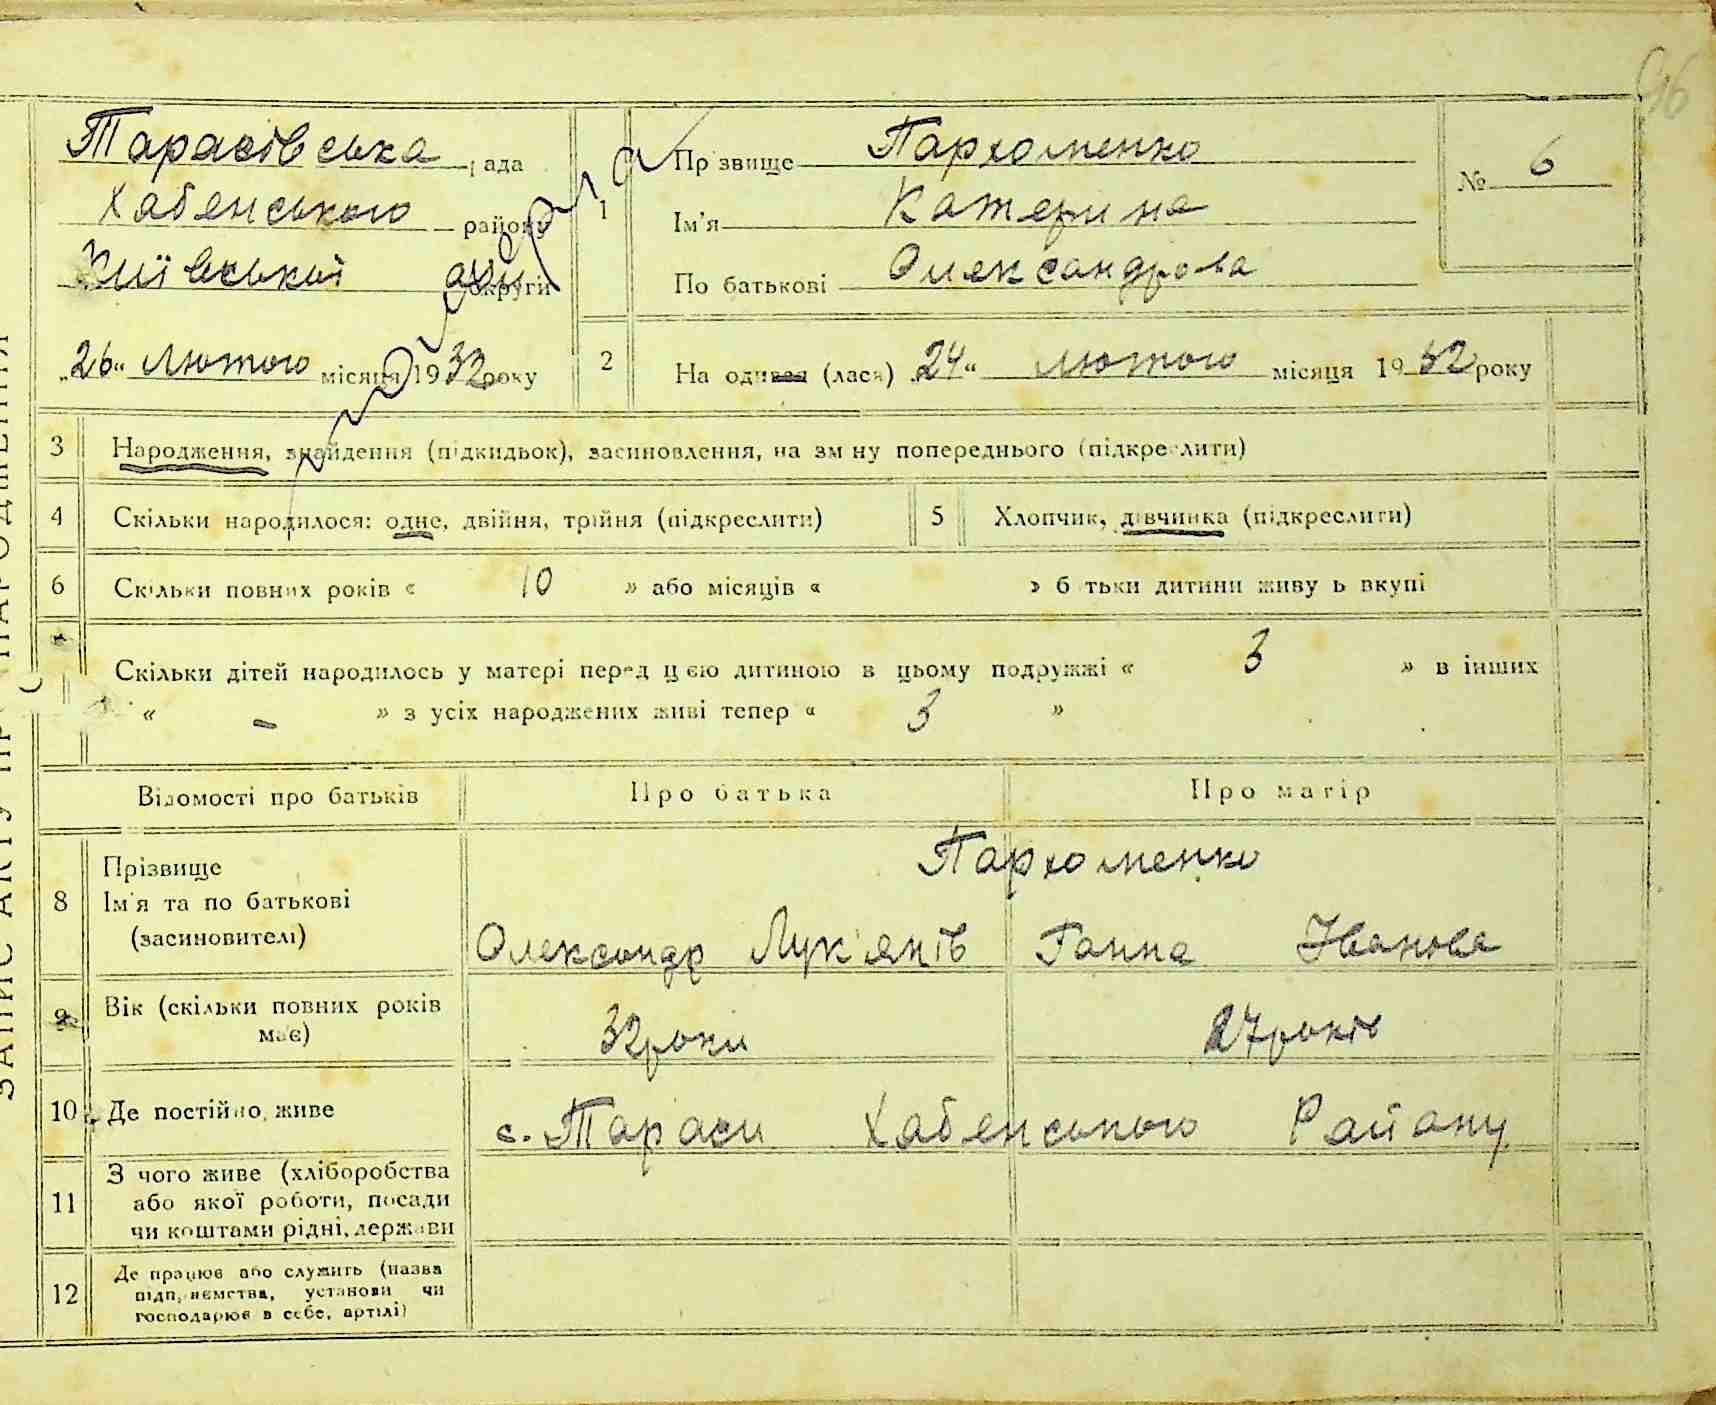 96
ЗАПИС АКТУ ПРО НАРОДЖЕННЯ
Тарасівська рада
Хабенського району
Київської округи
"26" Лютого місяця 1932 року
1
Прізвище Пархоменко
Ім'я Катерина
По батькові Олександрова
№ 6
2 На одився (лася) "24" лютого місяця 1932 року
3 Народження, знайдення (підкидьок), засиновлення, на зміну попереднього (підкреслити)
4 Скільки народилося: одне, двійня, трійня (підкреслити) 5 Хлопчик, дівчинка (підкреслити)
6 Скільки повних років « 10 » або місяців « » батьки дитини живуть вкупі
Скільки дітей народилось у матері перед цією дитиною в цьому подружжі « 3 » в інших
« – » з усіх народжених живі тепер « 3 »
Відомості про батьків Про батька Про матір
8 Прізвище
Ім'я та по батькові
(засиновителі)
Пархоменко
Олександр Лук'янів Ганна Іванова
9 Вік (скільки повних років
має)
32 роки 27 років
10 Де постійно живе с. Тараси Хабенського Району
11 З чого живе (хліборобства
або якої роботи, посади
чи коштами рідні, держави
12 Де працює або служить (назва
підприємства, установи чи
господарює в себе, артілі)